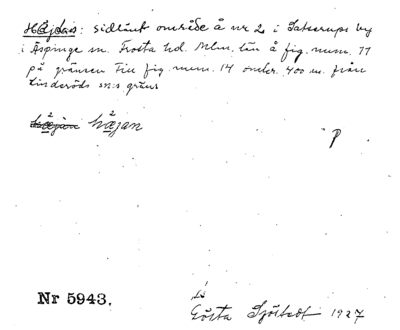 Håjdas: sidlänt område å nr 2 i Satserups by
i Äspinge sn. Frosta hd. Mlm. län å fig. num. 11
på gränsen till fig. num. 14 omkr. 400 m. från
Linderöds sn:s gräns
håjan
P
Nr 5943.
Gösta Sjöstedt 1927